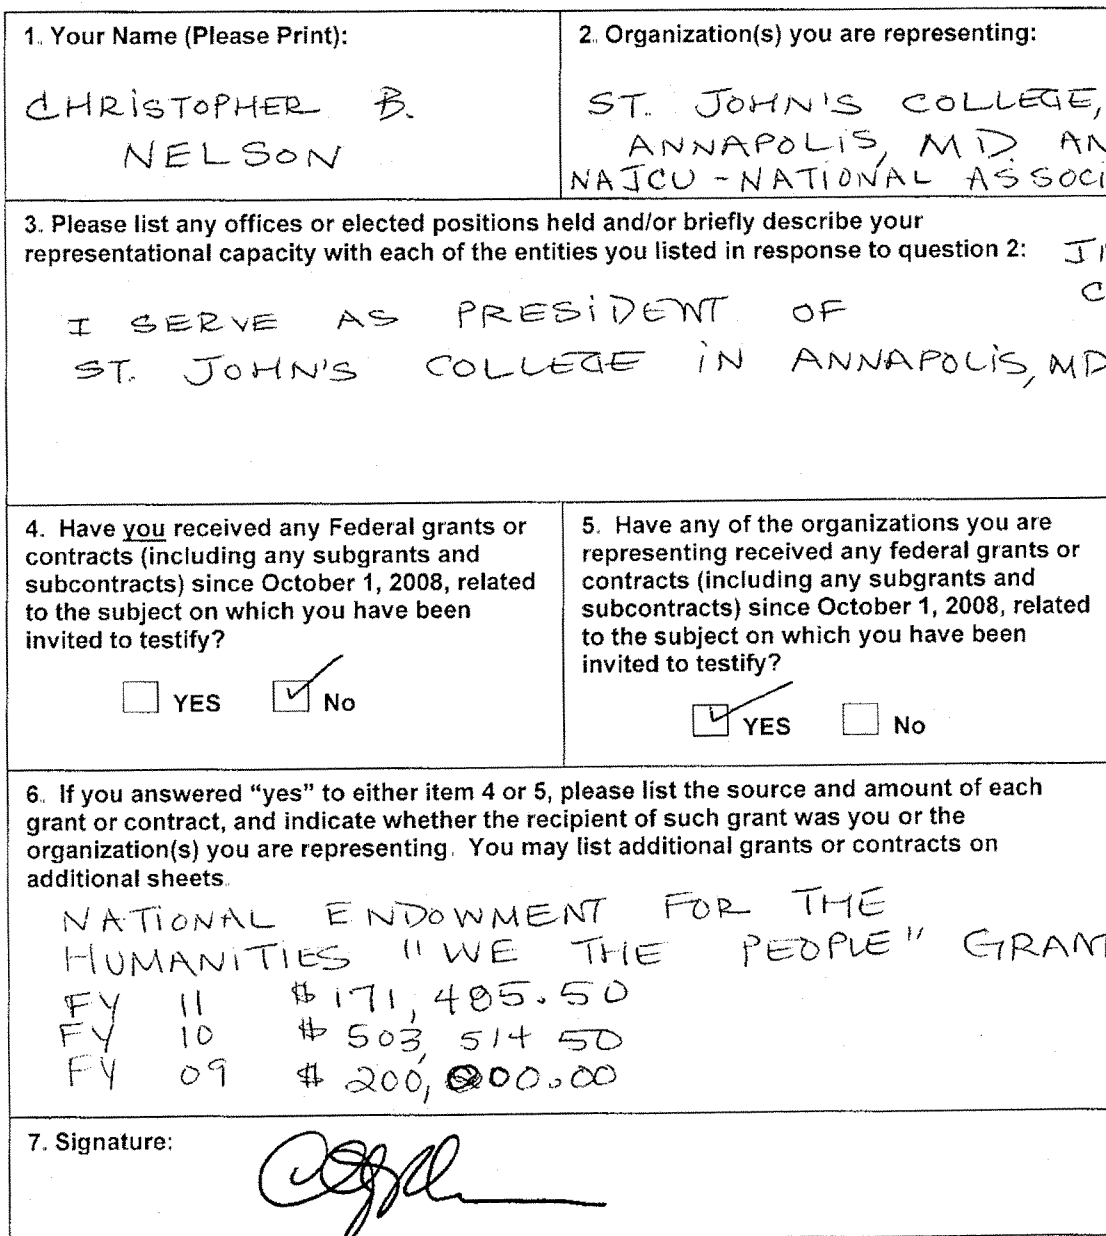 1. Your Name (Please Print):
CHRISTOPHER B.
NELSON
2. Organization(s) you are representing:
ST. JOHN'S COLLEGE,
ANNAPOLIS, MD AN
NAICU - NATIONAL ASSOCI
3. Please list any offices or elected positions held and/or briefly describe your
representational capacity with each of the entities you listed in response to question 2:
I SERVE AS PRESIDENT OF
ST. JOHN'S COLLEGE IN ANNAPOLIS, MD
4. Have you received any Federal grants or
contracts (including any subgrants and
subcontracts) since October 1, 2008, related
to the subject on which you have been
invited to testify?
YES No
5. Have any of the organizations you are
representing received any federal grants or
contracts (including any subgrants and
subcontracts) since October 1, 2008, related
to the subject on which you have been
invited to testify?
YES No
6. If you answered "yes" to either item 4 or 5, please list the source and amount of each
grant or contract, and indicate whether the recipient of such grant was you or the
organization(s) you are representing. You may list additional grants or contracts on
additional sheets.
NATIONAL ENDOWMENT FOR THE
HUMANITIES "WE THE PEOPLE" GRANT
FY 11 $171,485.50
FY 10 $503,514 50
FY 09 $200,000.00
7. Signature: